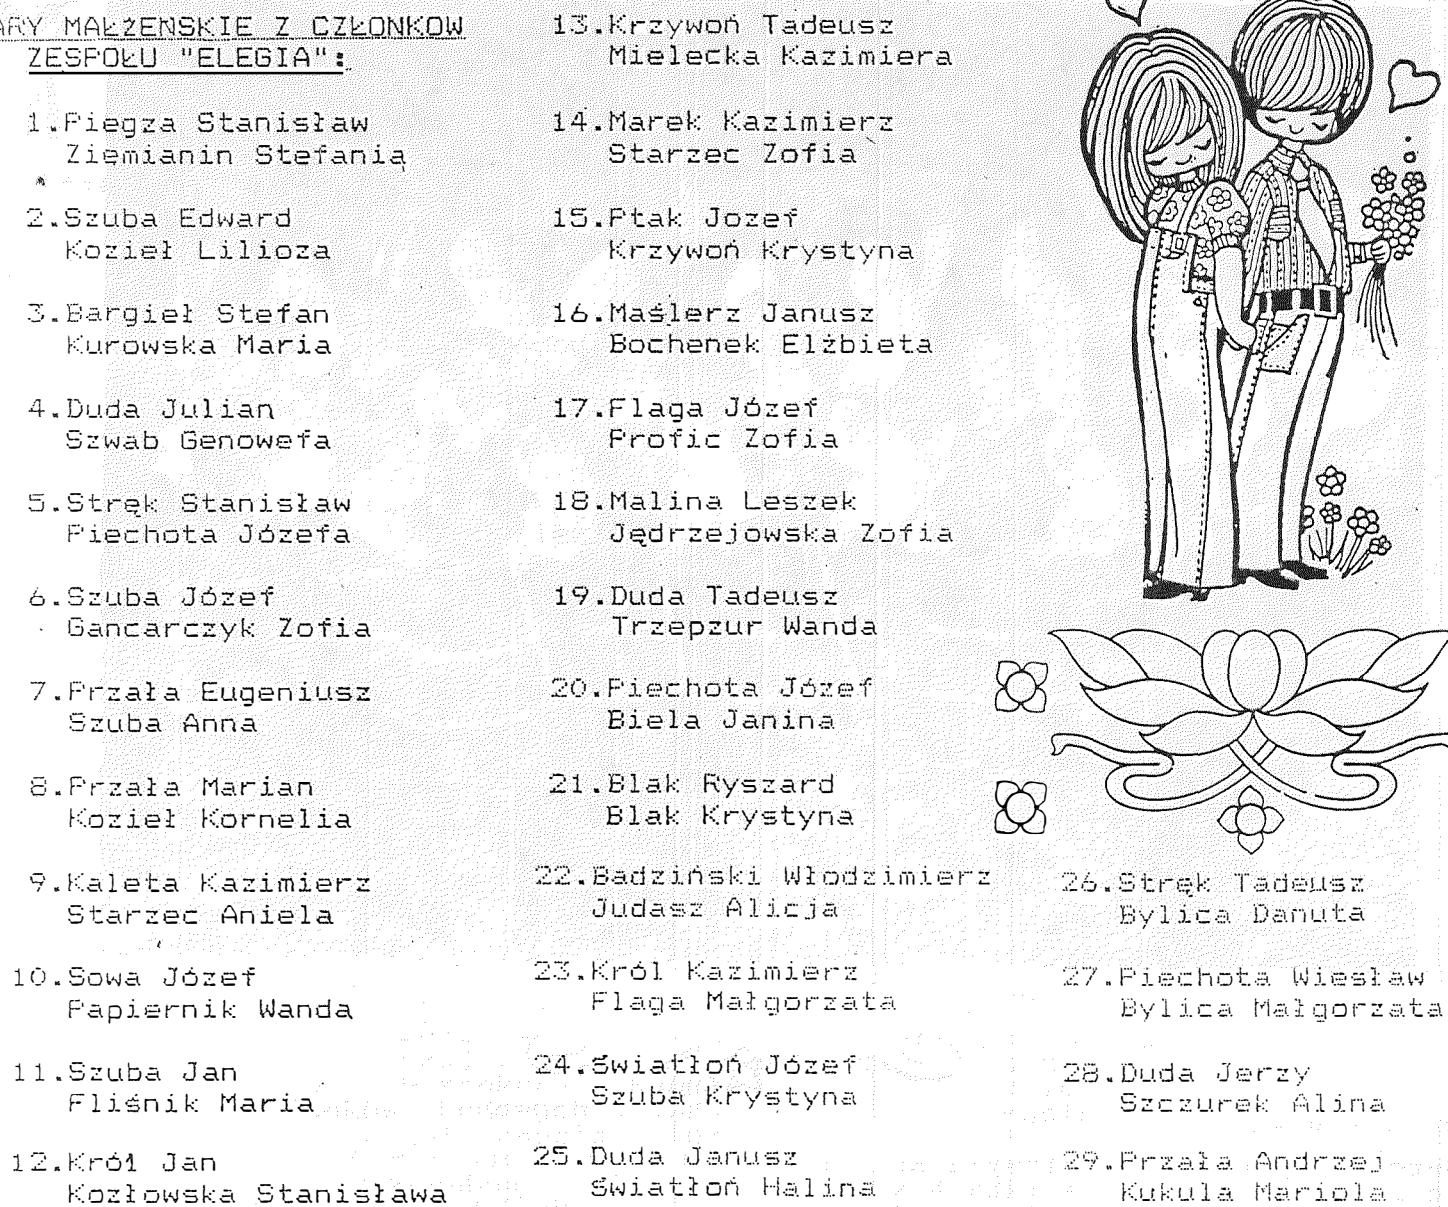 ARY MAŁŻEŃSKIE Z CZŁONKÓW
ZESPOŁU "ELEGIA":
1.Piegza Stanisław
Ziemianin Stefania
2.Szuba Edward
Kozieł Lilioza
3.Bargieł Stefan
Kurowska Maria
4.Duda Julian
Szwab Genowefa
5.Stręk Stanisław
Piechota Józefa
6.Szuba Józef
Gancarczyk Zofia
7.Przała Eugeniusz
Szuba Anna
8.Przała Marian
Kozieł Kornelia
9.Kaleta Kazimierz
Starzec Aniela
10.Sowa Józef
Papiernik Wanda
11.Szuba Jan
Fliśnik Maria
12.Król Jan
Kozłowska Stanisława
13.Krzywoń Tadeusz
Mielecka Kazimiera
14.Marek Kazimierz
Starzec Zofia
15.Ptak Jozef
Krzywoń Krystyna
16.Maślerz Janusz
Bochenek Elżbieta
17.Flaga Józef
Profic Zofia
18.Malina Leszek
Jędrzejowska Zofia
19.Duda Tadeusz
Trzepzur Wanda
20.Piechota Józef
Biela Janina
21.Blak Ryszard
Blak Krystyna
22.Badziński Włodzimierz
Judasz Alicja
23.Król Kazimierz
Flaga Małgorzata
24.Światłoń Józef
Szuba Krystyna
25.Duda Janusz
Światłoń Halina
26.Stręk Tadeusz
Bylica Danuta
27.Piechota Wiesław
Bylica Małgorzata
28.Duda Jerzy
Szczurek Alina
29.Przała Andrzej
Kukula Mariola